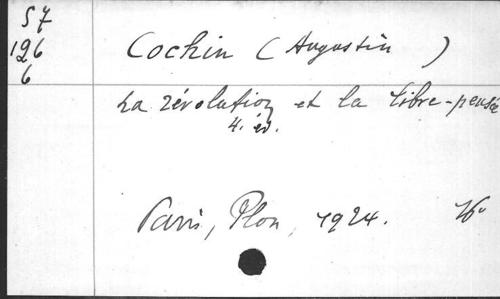 57
126
6
Cochin (Augustin )
La révolution et la libre-pensée
4. éd.
Paris, Plon, 1924.